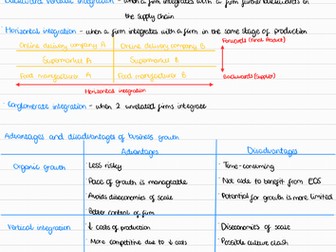 Backward vertical integration - when a firm integrates with a firm further backwards in
the supply chain
Horizontal integration - when a firm integrates with a firm in the same stage of production
Online delivery company A Online delivery company B
Supermarket A Supermarket B
Food manufacturer A Food manufacturer B
Forwards (final product)
Backwards (supplier)
Horizontal integration
Conglomerate integration - when 2 unrelated firms integrate
Advantages and disadvantages of business growth
Advantages Disadvantages
Organic growth Less risky Time-consuming
Pace of growth is manageable Not able to benefit from EOS
Avoids diseconomies of scale Potential for growth is more limited
Better control of firm
Vertical integration ↓ costs of production Diseconomies of scale
More competitive due to ↓ costs Possible culture clash